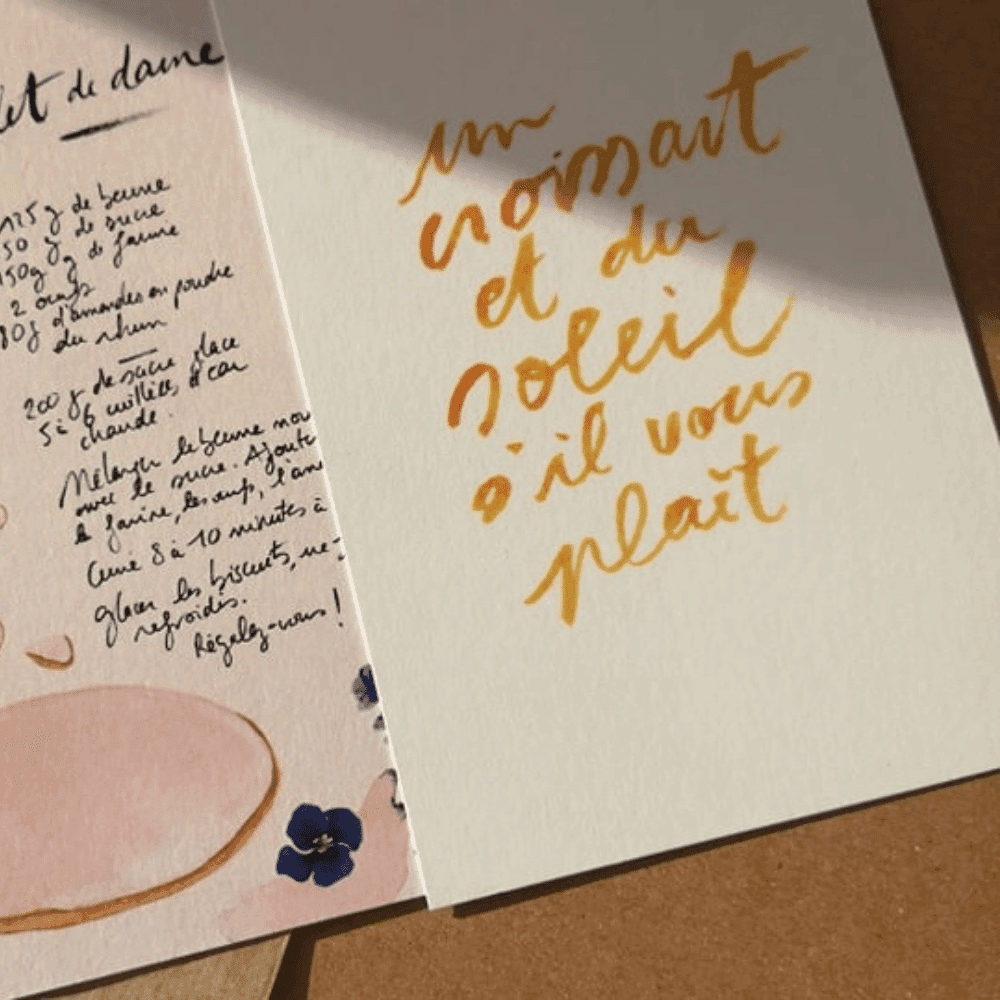 de dame
125 g de beurre
50 g de sucre
150g g de farine
2 oeufs
80g d'amandes en poudre
du rhum
200 g de sucre glace
5 à 6 cuillères d'eau
chaude.
Mélanger le beurre mou
avec le sucre. Ajouter
la farine, les oeufs,
Cuire 8 à 10 minutes à
glacer les biscuits,
refroidis.
Régalez-vous !
un
croissant
et du
soleil
s'il vous
plaît